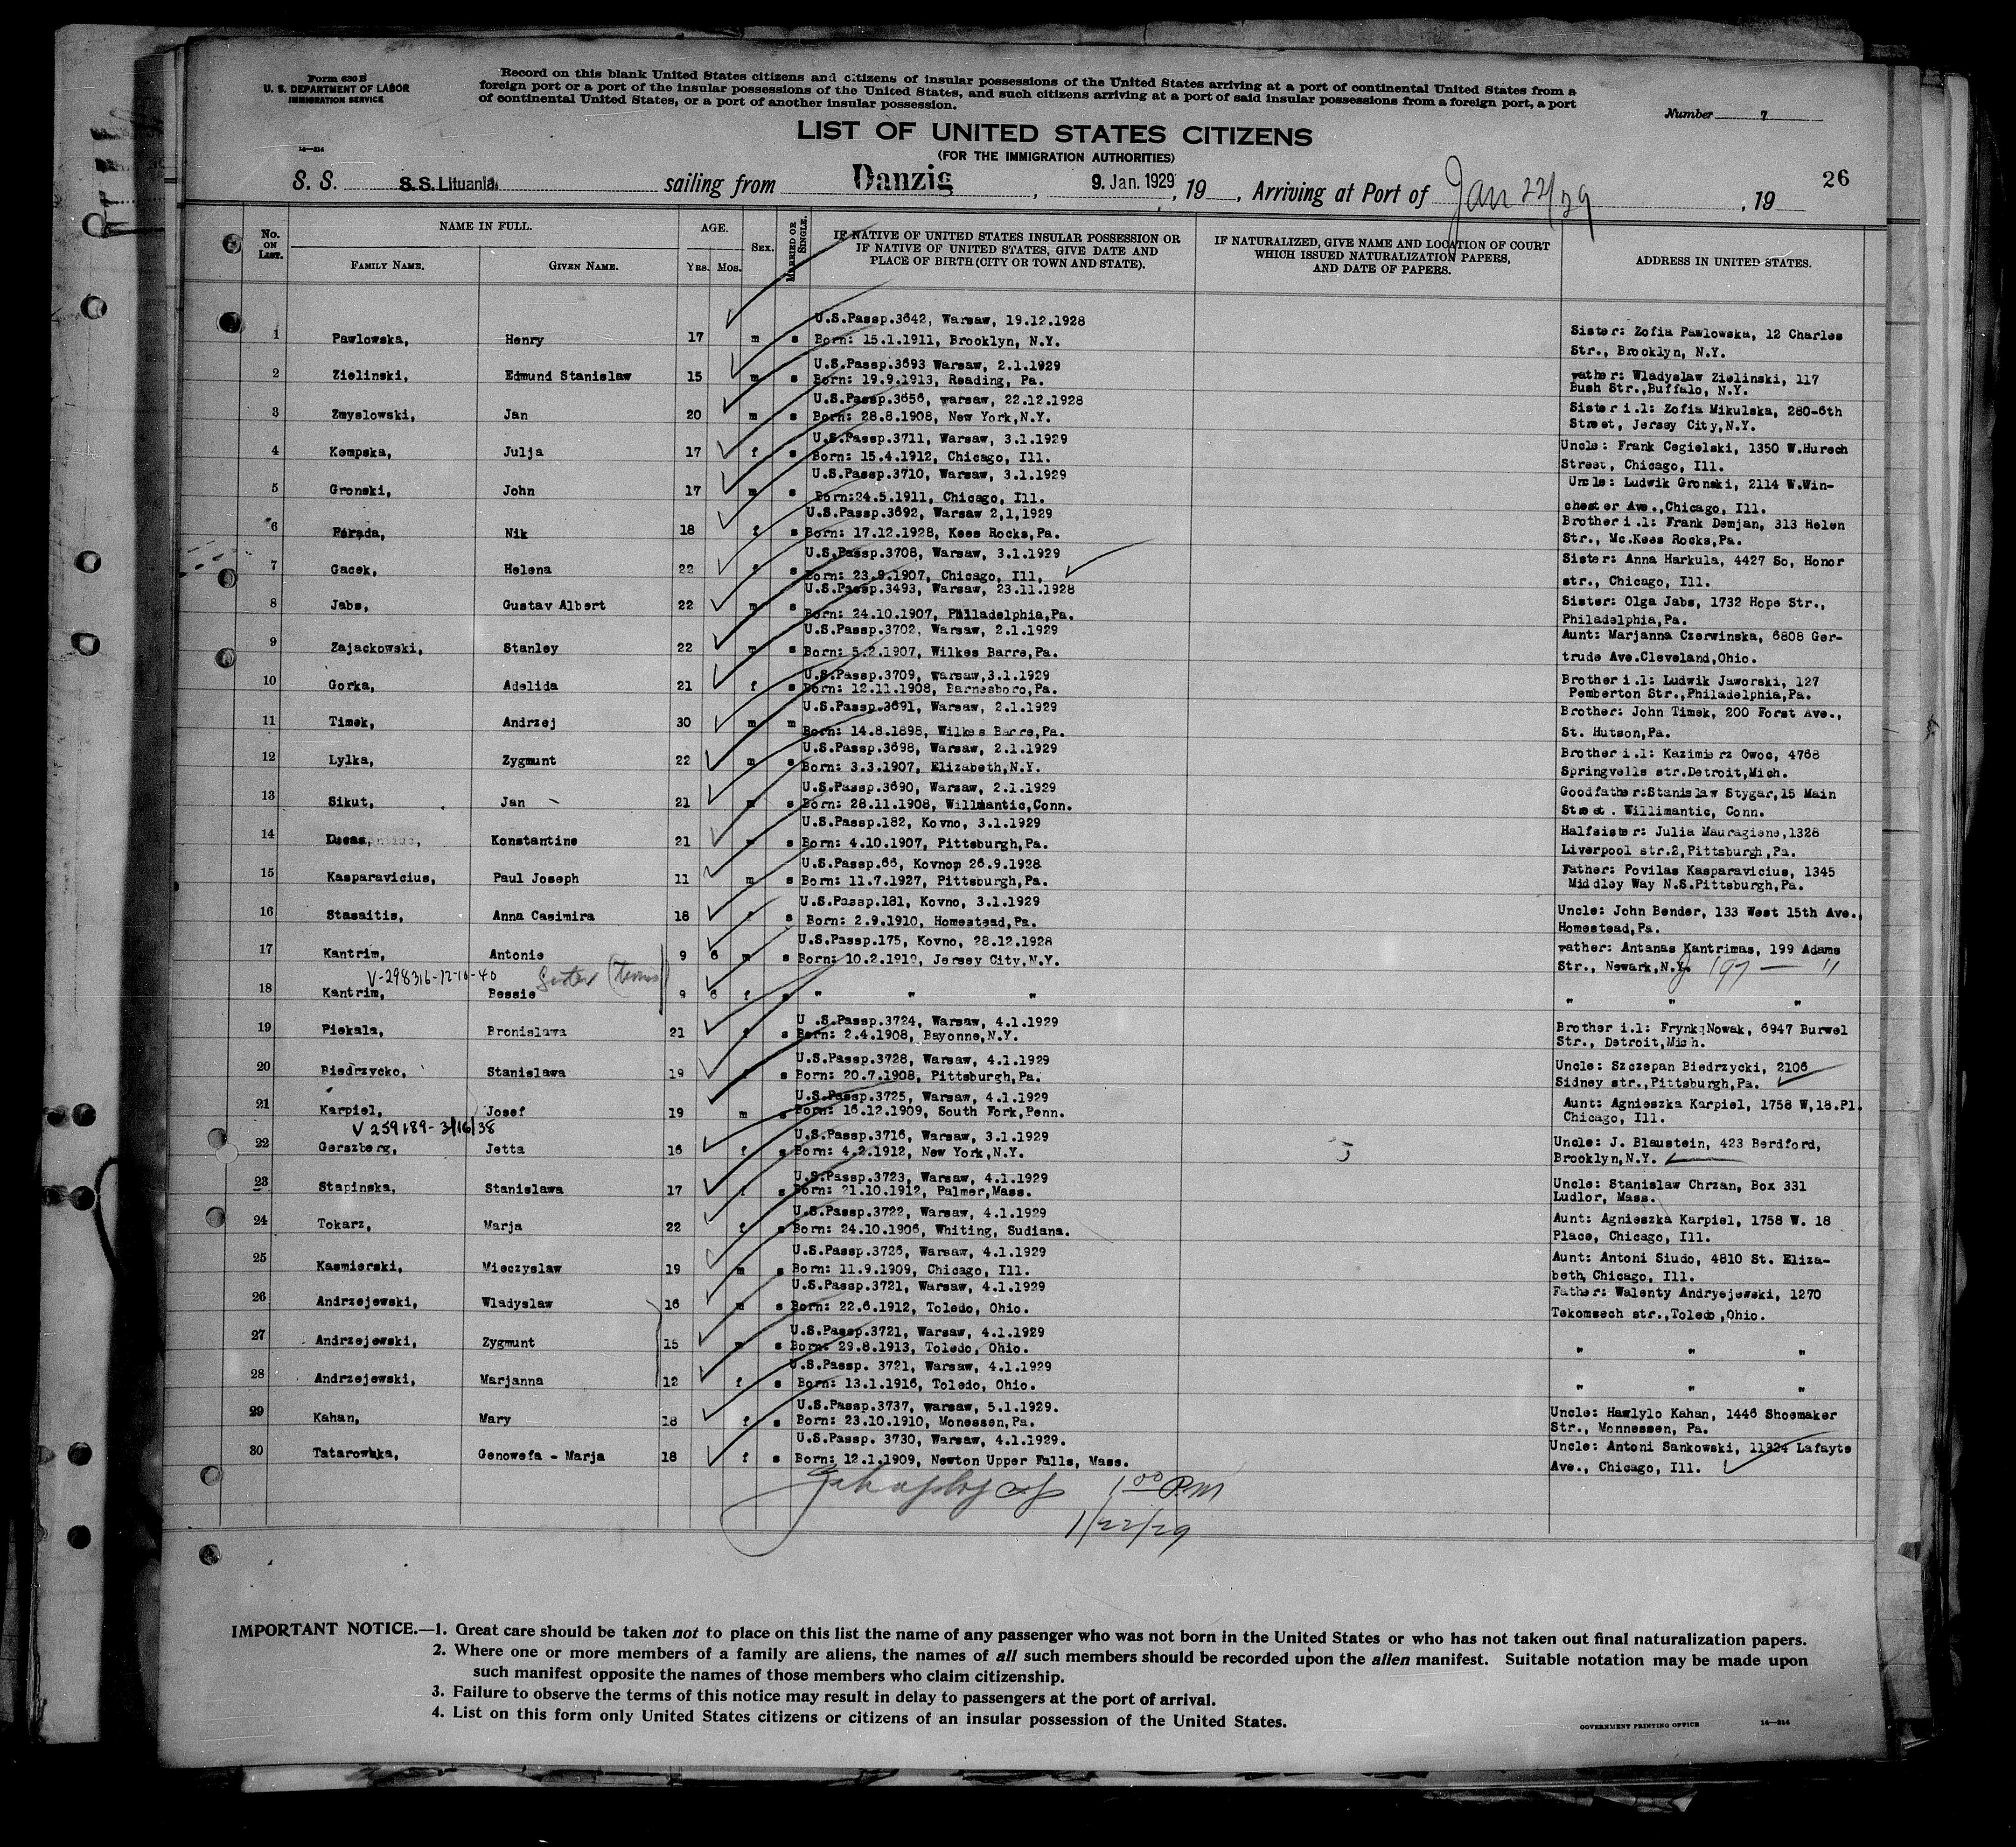 Form 630 B
U. S. DEPARTMENT OF LABOR
IMMIGRATION SERVICE
Record on this blank United States citizens and citizens of insular possessions of the United States arriving at a port of continental United States from a
foreign port or a port of the insular possessions of the United States, and such citizens arriving at a port of said insular possessions from a foreign port, a port
of continental United States, or a port of another insular possession.
Number 7
LIST OF UNITED STATES CITIZENS
(FOR THE IMMIGRATION AUTHORITIES)
14—214
26
S. S. S.S. Lituania sailing from Danzig, 9. Jan. 1929, 19, Arriving at Port of Jan 22/29, 19
No. ON LIST. NAME IN FULL. AGE. SEX. MARRIED OR SINGLE. IF NATIVE OF UNITED STATES INSULAR POSSESSION OR IF NATIVE OF UNITED STATES, GIVE DATE AND PLACE OF BIRTH (CITY OR TOWN AND STATE). IF NATURALIZED, GIVE NAME AND LOCATION OF COURT WHICH ISSUED NATURALIZATION PAPERS, AND DATE OF PAPERS. ADDRESS IN UNITED STATES.
FAMILY NAME. GIVEN NAME. YRS. MOS.
U.S.Passp.3642, Warsaw, 19.12.1928
1 Pawlowska, Henry 17 m s Born: 15.1.1911, Brooklyn, N.Y. Sister: Zofia Pawlowska, 12 Charles
Str., Brooklyn, N.Y.
U.S.Passp.3693 Warsaw, 2.1.1929
2 Zielinski, Edmund Stanislaw 15 m s Born: 19.9.1913, Reading, Pa. Father: Wladyslaw Zielinski, 117
Bush Str.,Buffalo, N.Y.
U.S.Passp.3656, warsaw, 22.12.1928
3 Zmyslowski, Jan 20 m s Born: 28.8.1908, New York,N.Y. Sister i.l: Zofia Mikulska, 280-6th
Street, Jersey City,N.Y.
U.S.Passp.3711, Warsaw, 3.1.1929
4 Kempska, Julja 17 f s Born: 15.4.1912, Chicago, Ill. Uncle: Frank Cegielski, 1350 W.Hurech
Street, Chicago, Ill.
U.S.Passp.3710, Warsaw, 3.1.1929
5 Gronski, John 17 m s Born:24.5.1911, Chicago, Ill. Uncle: Ludwik Gronski, 2114 W.Win-
chester Ave.,Chicago, Ill.
U.S.Passp.3692, Warsaw 2,1,1929
6 Parada, Nik 18 f s Born: 17.12.1928, Kees Rocks,Pa. Brother i.l: Frank Demjan, 313 Helen
Str., Mc.Kees Rocks,Pa.
U.S.Passp.3708, Warsaw, 3.1.1929
7 Gacek, Helena 22 f s Born: 23.9.1907, Chicago, Ill, Sister: Anna Harkula, 4427 So, Honor
str., Chicago, Ill.
U.S.Passp.3493, Warsaw, 23.11.1928
8 Jabs, Gustav Albert 22 m s Born: 24.10.1907, Philadelphia,Pa. Sister: Olga Jabs, 1732 Hope Str.,
Philadelphia,Pa.
U.S.Passp.3702, Warsaw, 2.1.1929
9 Zajackowski, Stanley 22 m s Born: 5.2.1907, Wilkes Barre,Pa. Aunt: Marjanna Czerwinska, 6808 Ger-
trude Ave.Cleveland,Ohio.
U.S.Passp.3709, warsaw,3.1.1929
10 Gorka, Adelida 21 f s Born: 12.11.1908, Barnesboro,Pa. Brother i.l: Ludwik Jaworski, 127
Pemberton Str.,Philadelphia,Pa.
U.S.Passp.3691, Warsaw, 2.1.1929
11 Timek, Andrzej 30 m m Born: 14.8.1898, Wilkes Barre,Pa. Brother: John Timek, 200 Forst Ave.,
St. Hutson,Pa.
U.S.Passp.3698, Warsaw, 2.1.1929
12 Lylka, Zygmunt 22 m s Born: 3.3.1907, Elizabeth,N.Y. Brother i.l: Kazimierz Owoc, 4768
Springvells str.Detroit,Mich.
U.S.Passp.3690, Warsaw, 2.1.1929
13 Sikut, Jan 21 m s Born: 28.11.1908, Willmantic,Conn. Goodfather:Stanislaw Stygar,15 Main
Street. Willimantic, Conn.
U.S.Passp.182, Kovno, 3.1.1929
14 Konstantine 21 m s Born: 4.10.1907, Pittsburgh,Pa. Halfsister: Julia Mauragiene,1328
Liverpool str.2,Pittsburgh,Pa.
U.S.Passp.66, Kovnop 26.9.1928
15 Kasparavicius, Paul Joseph 11 m s Born: 11.7.1927, Pittsburgh,Pa. Father: Povilas Kasparavicius, 1345
Middley Way N.S.Pittsburgh,Pa.
U.S.Passp.181, Kovno, 3.1.1929
16 Stasaitis, Anna Casimira 18 f s Born: 2.9.1910, Homestead,Pa. Uncle: John Bender, 133 West 15th Ave.,
Homestead,Pa.
U.S.Passp.175, Kovno, 28.12.1928
17 Kantrim, Antonie 9 6 m s Born: 10.2.1919, Jersey City,N.Y. Father: Antanas Kantrimas, 199 Adams
Str., Newark,N.Y. 197 — "
V-298316-12-16-40 Sister (twins)
18 Kantrim, Bessie 9 6 f s " " " " " "
U.S.Passp.3724, Warsaw, 4.1.1929
19 Piekala, Bronislawa 21 f s Born: 2.4.1908, Bayonne,N.Y. Brother i.l: Frynk Nowak, 6947 Burwel
Str., Detroit,Mich.
U.S.Passp.3728, Warsaw, 4.1.1929
20 Biedrzycko, Stanislawa 19 f s Born: 20.7.1908, Pittsburgh,Pa. Uncle: Szczepan Biedrzycki, 2106
Sidney str.,Pittsburgh,Pa.
U.S.Passp.3725, Warsaw, 4.1.1929
21 Karpiel, Josef 19 m s Born: 16.12.1909, South Fork,Penn. Aunt: Agnieszka Karpiel, 1758 W,18.Pl.
Chicago, Ill.
V 259189- 3/16/38
U.S.Passp.3716, Warsaw, 3.1.1929
22 Gerszberg, Jetta 16 f s Born: 4.2.1912, New York,N.Y. Uncle: J. Blaustein, 423 Berdford,
Brooklyn,N.Y.
U.S.Passp.3723, Warsaw, 4.1.1929
23 Stapinska, Stanislawa 17 f s Born: 21.10.1912, Palmer,Mass. Uncle: Stanislaw Chrzan, Box 331
Ludlor, Mass.
U.S.Passp.3722, Warsaw, 4.1.1929
24 Tokarz, Marja 22 f s Born: 24.10.1906, Whiting, Sudiana. Aunt: Agnieszka Karpiel, 1758 W. 18
Place, Chicago, Ill.
U.S.Passp.3726, Warsaw, 4.1.1929
25 Kasmierski, Mieczyslaw 19 m s Born: 11.9.1909, Chicago, Ill. Aunt: Antoni Siudo, 4810 St. Eliza-
beth, Chicago, Ill.
U.S.Passp.3721, Warsaw, 4.1.1929
26 Andrzejewski, Wladyslaw 16 m s Born: 22.6.1912, Toledo, Ohio. Father: Walenty Andryejewski, 1270
Tekomsech str.,Toledo,Ohio.
U.S.Passp.3721, Warsaw, 4.1.1929
27 Andrzejewski, Zygmunt 15 m s Born: 29.8.1913, Toledo, Ohio. " " "
U.S.Passp. 3721, Warsaw, 4.1.1929
28 Andrzejewski, Marjanna 12 f s Born: 13.1.1916, Toledo, Ohio. " " "
U.S.Passp.3737, warsaw, 5.1.1929.
29 Kahan, Mary 18 f s Born: 23.10.1910, Monessen,Pa. Uncle: Hawlylo Kahan, 1446 Shoemaker
Str., Monnessen, Pa.
U.S.Passp. 3730, Warsaw, 4.1.1929.
30 Tatarowska, Genowefa - Marja 18 f s Born: 12.1.1909, Newton Upper Falls, Mass. Uncle: Antoni Sankowski, 11924 Lafayte
Ave., Chicago, Ill.
1 00 PM
1/22/29
IMPORTANT NOTICE.—1. Great care should be taken not to place on this list the name of any passenger who was not born in the United States or who has not taken out final naturalization papers.
2. Where one or more members of a family are aliens, the names of all such members should be recorded upon the alien manifest. Suitable notation may be made upon
such manifest opposite the names of those members who claim citizenship.
3. Failure to observe the terms of this notice may result in delay to passengers at the port of arrival.
4. List on this form only United States citizens or citizens of an insular possession of the United States.
GOVERNMENT PRINTING OFFICE 14—214